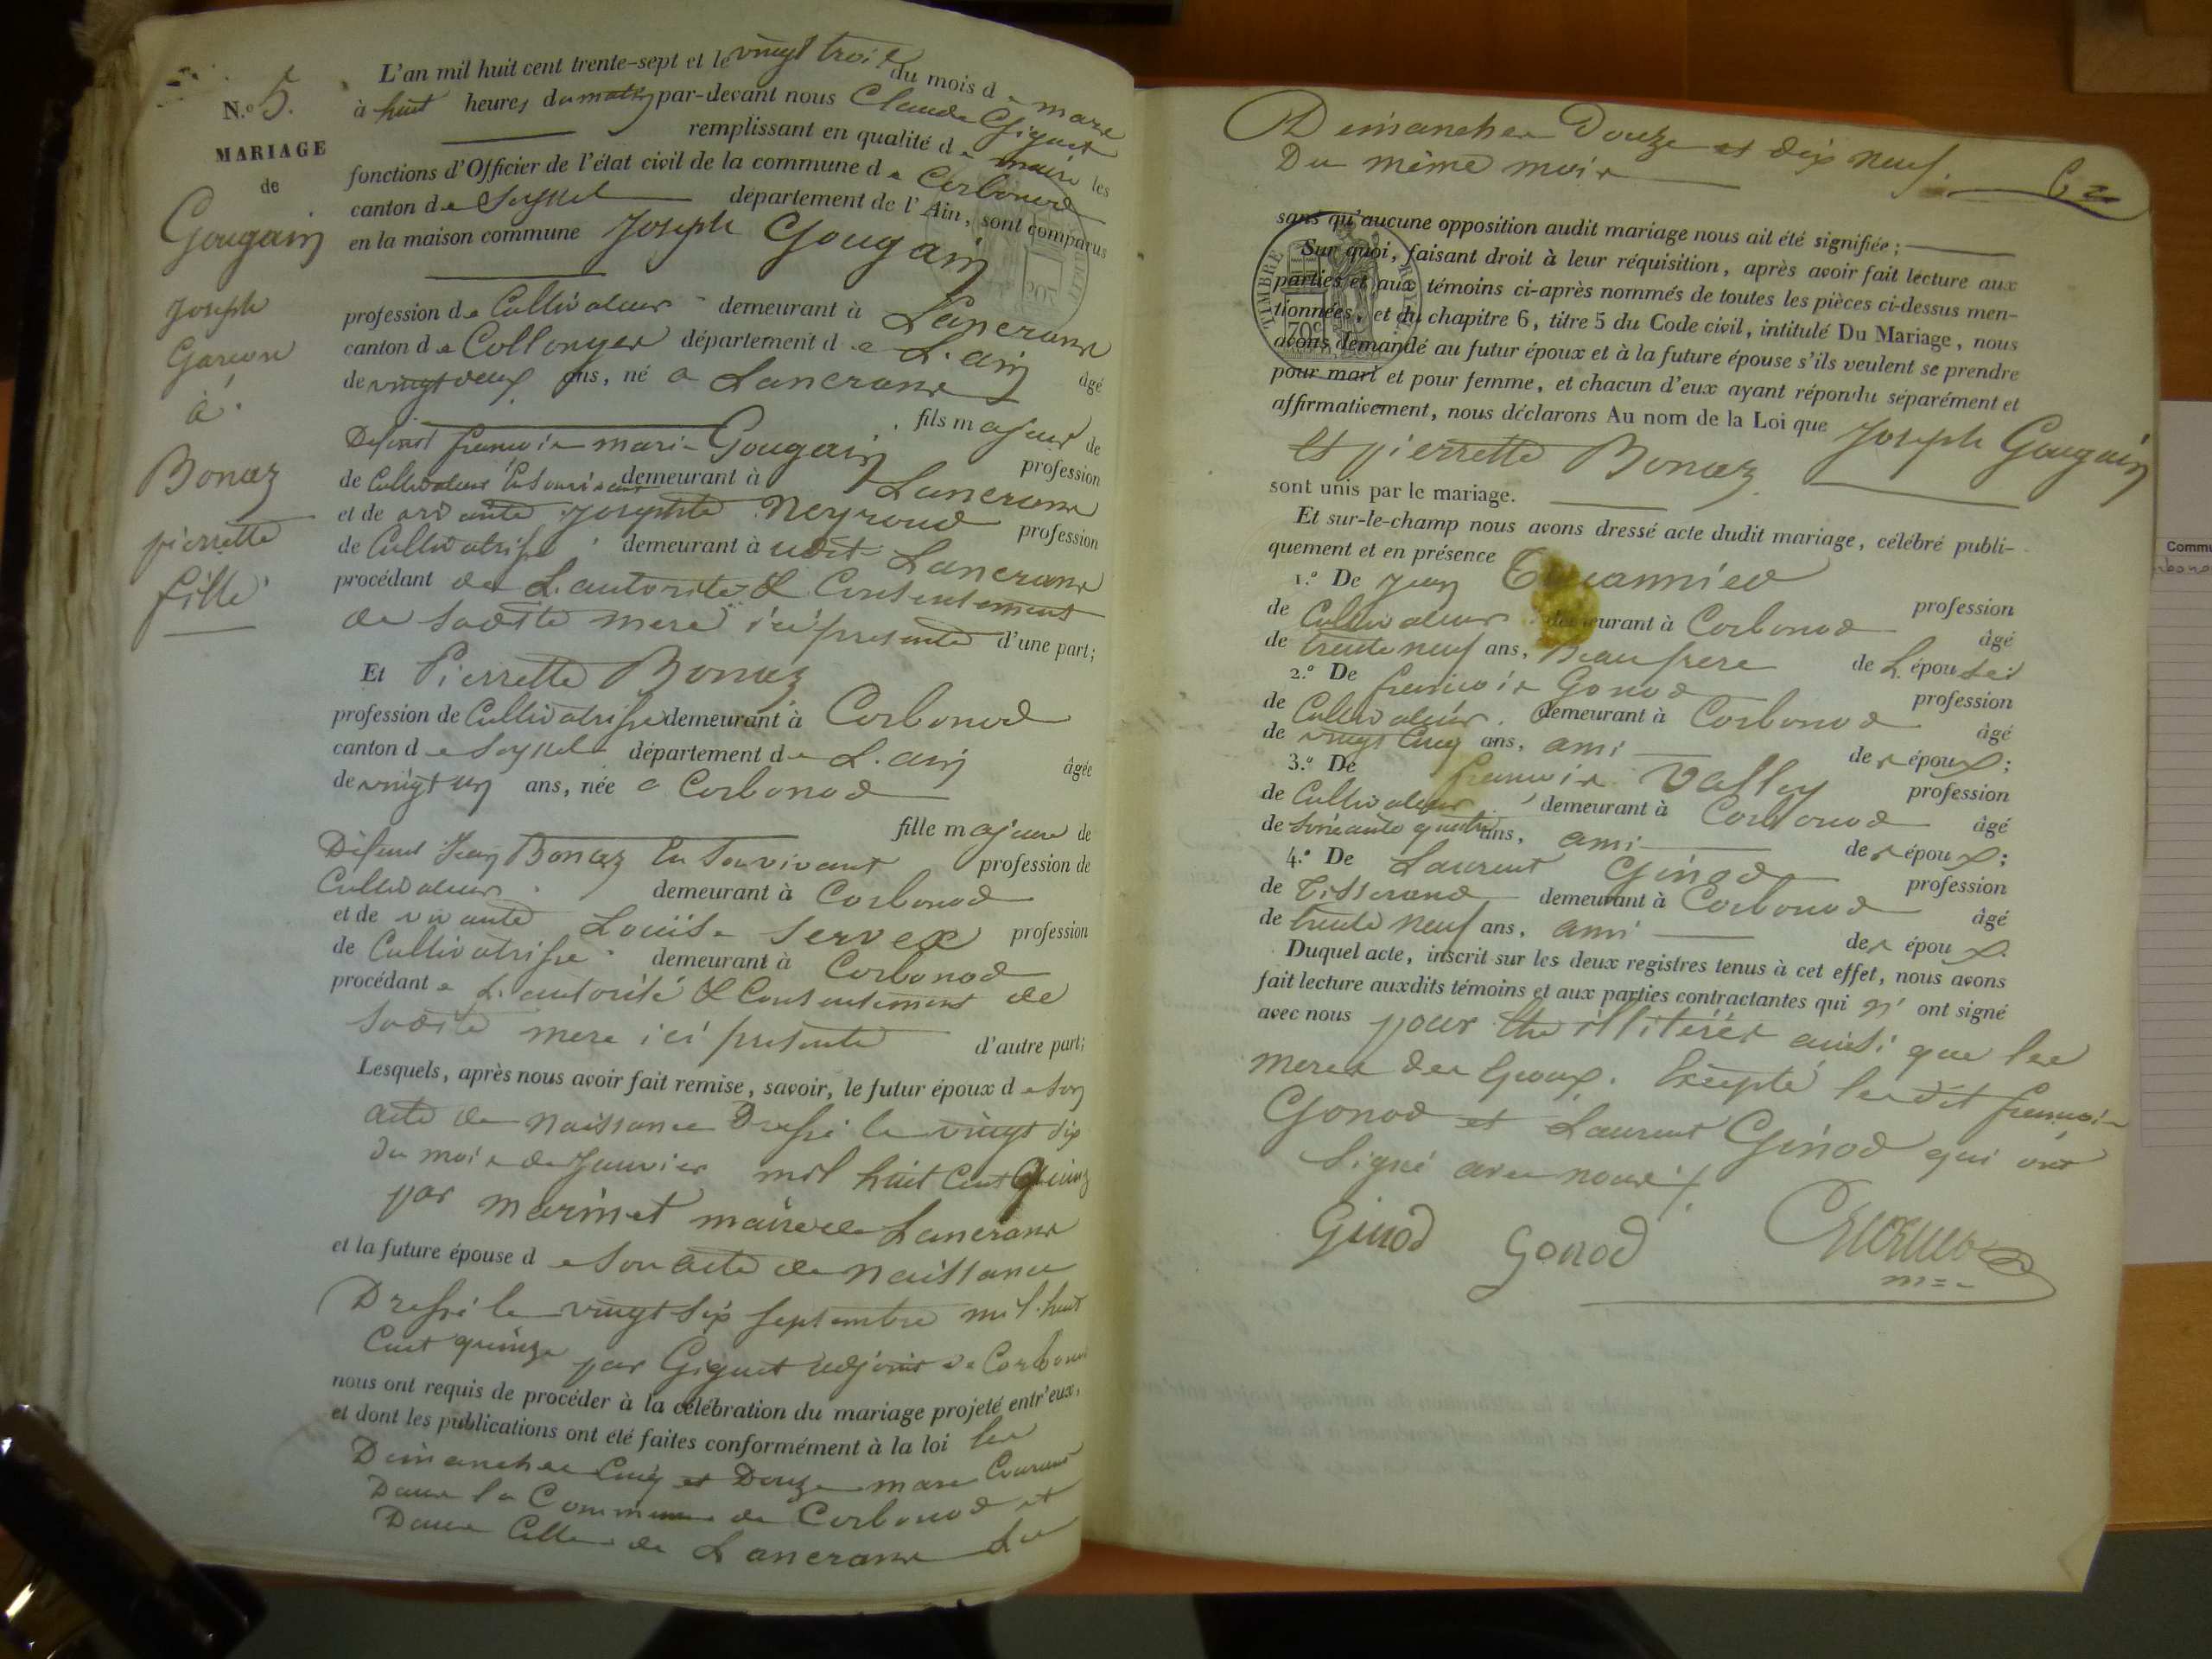 N.º 5.
MARIAGE
de
Gougain
Joseph
Garcon
à
Bonaz
pierrette
fille
L'an mil huit cent trente-sept et le vingt trois du mois de mars
à huit heures du matin par-devant nous Claude Giguet
remplissant en qualité de maire les
fonctions d'Officier de l'état civil de la commune de Corbonod
canton de Seyssel département de l'Ain, sont comparus
en la maison commune Joseph Gougain
profession de Cultivateur demeurant à Lancrans
canton de Collonges département de L'ain âgé
de vingt deux ans, né a Lancrans
fils majeur de
Defunt francois marie Gougain profession
de Cultivateur En Son vivant demeurant à Lancrans
et de vivante Josephte Neyroud profession
de Cultivatrisse demeurant à udit Lancrans
procédant de L'autorité & Consentement
de Sadite mere ici présente d'une part;
Et Pierrette Bonaz
profession de Cultivatrisse demeurant à Corbonod
canton de Seyssel département de L'ain âgée
de vingt un ans, née a Corbonod
fille majeure de
Défunt Jean Bonaz En Son vivant profession de
Cultivateur demeurant à Corbonod
et de vivante Louise Servex profession
de Cultivatrisse demeurant à Corbonod
procédant de L'autorité & Consentement de
Sadite mere ici présente d'autre part;
Lesquels, après nous avoir fait remise, savoir, le futur époux de Son
acte de Naissance Dressé le vingt six
du mois de Janvier mil huit Cent Quinze
par marinet maire de Lancrans
et la future épouse de Son acte de Naissance
Dressé le vingt six septembre mil huit
Cent quinze par Giguet adjoint de Corbonod
nous ont requis de procéder à la célébration du mariage projeté entr'eux,
et dont les publications ont été faites conformément à la loi les
Dimanches Cinq et Douze mars Courant
Dans la Commune de Corbonod et
Dans Celle de Lancrans Les
Dimanches Douze et dix neuf
Du même mois
sans qu'aucune opposition audit mariage nous ait été signifiée;
Sur quoi, faisant droit à leur réquisition, après avoir fait lecture aux
parties et aux témoins ci-après nommés de toutes les pièces ci-dessus men-
tionnées, et du chapitre 6, titre 5 du Code civil, intitulé Du Mariage, nous
avons demandé au futur époux et à la future épouse s'ils veulent se prendre
pour mari et pour femme, et chacun d'eux ayant répondu séparément et
affirmativement, nous déclarons Au nom de la Loi que Joseph Gougain
Et pierrette Bonaz
sont unis par le mariage.
Et sur-le-champ nous avons dressé acte dudit mariage, célébré publi-
quement et en présence
1.º De Jean profession
de Cultivateur demeurant à Corbonod âgé
de trente neuf ans, Beaufrere de L'épouse
2.º De francois Gonod profession
de Cultivateur demeurant à Corbonod âgé
de vingt Cinq ans, ami des époux;
3.º De francois Valley profession
de Cultivateur demeurant à Corbonod âgé
de soixante quatre ans, ami des époux;
4.º De Laurent Ginod profession
de Tisserand demeurant à Corbonod âgé
de trente neuf ans, ami des époux.
Duquel acte, inscrit sur les deux registres tenus à cet effet, nous avons
fait lecture auxdits témoins et aux parties contractantes qui n' ont signé
avec nous pour être illitérés ainsi que les
meres des Epoux. Excepté lesdit francois
Gonod et Laurent Ginod qui ont
Signé avec nous
Ginod Gonod
TIMBRE ROYAL
70c